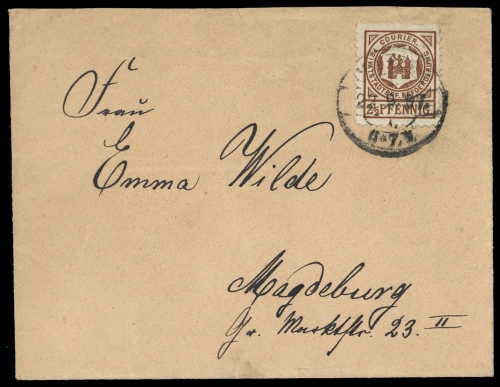 COURIER
2½ PFENNIG
Frau
Emma Wilde
Magdeburg
Gr. Marktstr. 23. II